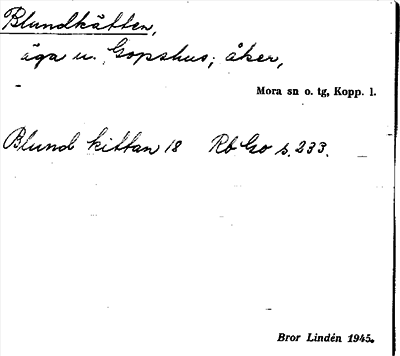 Blundkätten,
äga u. Gopshus; åker,
Mora sn o. tg, Kopp. l.
Blund kittan 18 Rb Go s. 233.
Bror Lindén 1945.